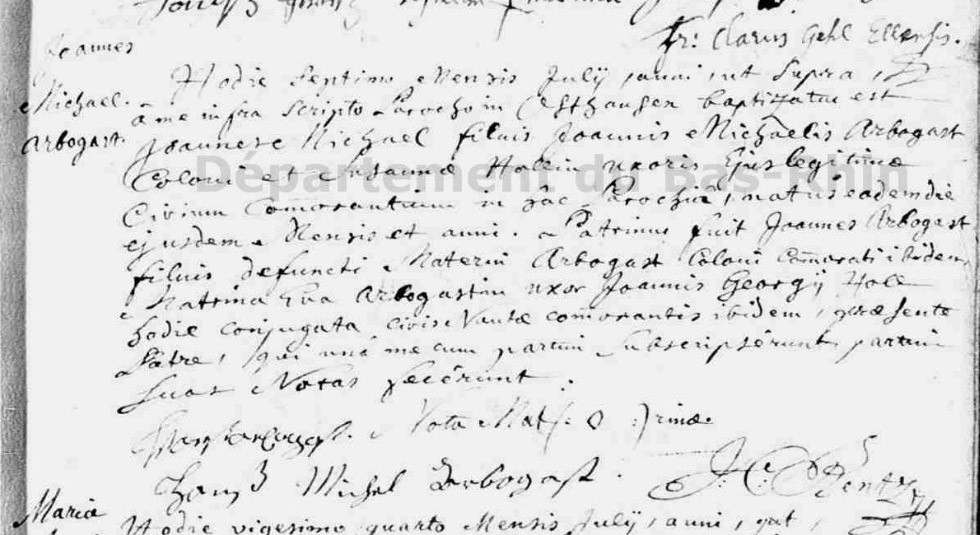 Fr: Clarus Gehl
Joannes
Michael.
Arbogast.
Hodie Septimo Mensis July, anni, ut Supra,
a me infra Scripto Parocho in baptizatus est
Joannes Michael filius Joannis Michaelis Arbogast
Coloni et Susannæ Hollin uxoris Ejus legitimæ
Civium Commorantium in hac Parochiâ, natus eadem die
ejusdem Mensis et anni. Patrinus fuit Joannes Arbogast
filius defuncti Materni Arbogast Coloni Comorati ibidem,
Matrina Eva Arbogastin uxor Joannis Georgij Holl
hodie conjugata civis Nautæ commorantis ibidem, præsente
Patre, qui unà mecum partim Subscripserunt, partim
Suas Notas fecerunt.
Nota Mat(: O :)rinæ
Hanß Michel Arbogast.
Maria
Hodie vigesimo quarto Mensis July, anni, ut,
Département du Bas-Rhin